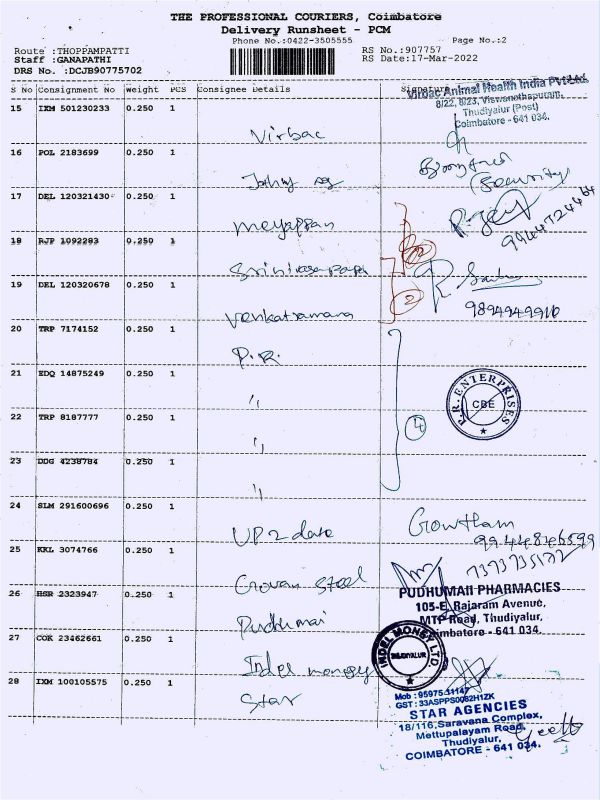 THE PROFESSIONAL COURIERS, Coimbatore
Delivery Runsheet - PCM
Phone No.:0422-3505555
Page No.:2
Route :THOPPAMPATTI
Staff :GANAPATHI
DRS No. :DCJB90775702
RS No.:907757
RS Date:17-Mar-2022
S No Consignment No Weight PCS Consignee Details Signature
Virbac Animal Health India Pvt Ltd
8/22, 8/23, Viswanathapuram,
Thudiyalur (Post)
Coimbatore - 641 034.
15 IXM 501230233 0.250 1
Virbac
16 POL 2183699 0.250 1
(Security)
17 DEL 120321430 0.250 1
Meyappan
9944724464
18 RJP 1092283 0.250 1
19 DEL 120320678 0.250 1
2
Venkatramana
9894949910
20 TRP 7174152 0.250 1
P.R.
21 EDQ 14875249 0.250 1
"
P.R. ENTERPRISES
CBE
22 TRP 8187777 0.250 1
"
4
23 DDG 4238784 0.250 1
"
24 SLM 291600696 0.250 1
UP 2 date
Gowtham
25 KKL 3074766 0.250 1
7373735172
Govan Steel
26 HSR 2323947 0.250 1
Pudhumai
PUDHUMAI PHARMACIES
105-E, Rajaram Avenue,
MTP Road, Thudiyalur,
Coimbatore - 641 034.
27 COK 23462661 0.250 1
Indel money
INDEL MONEY LTD
THUDIYALUR
28 IXM 100105575 0.250 1
Star
Mob : 95975 31147
GST : 33ASPPS0082H1ZK
STAR AGENCIES
18/116, Saravana Complex,
Mettupalayam Road,
Thudiyalur,
COIMBATORE - 641 034.